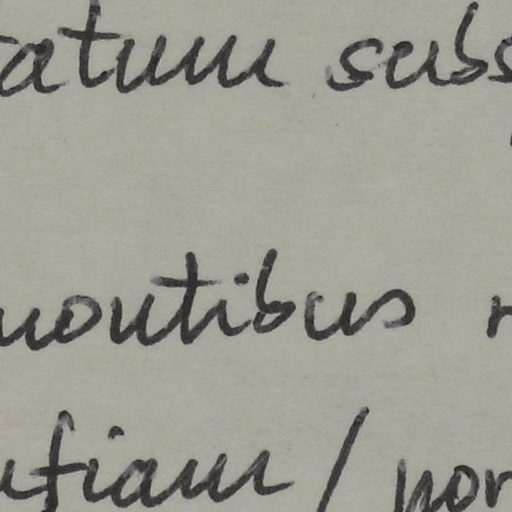 tatum subs
montibus n
nfiam / non